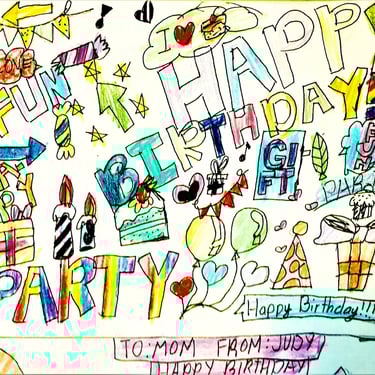 I
HAPPY
LOVE
FUN
BIRTHDAY
GIFT
FUN
PARTY
Happy Birthday!!!
TO: MOM FROM: JUDY
HAPPY BIRTHDAY